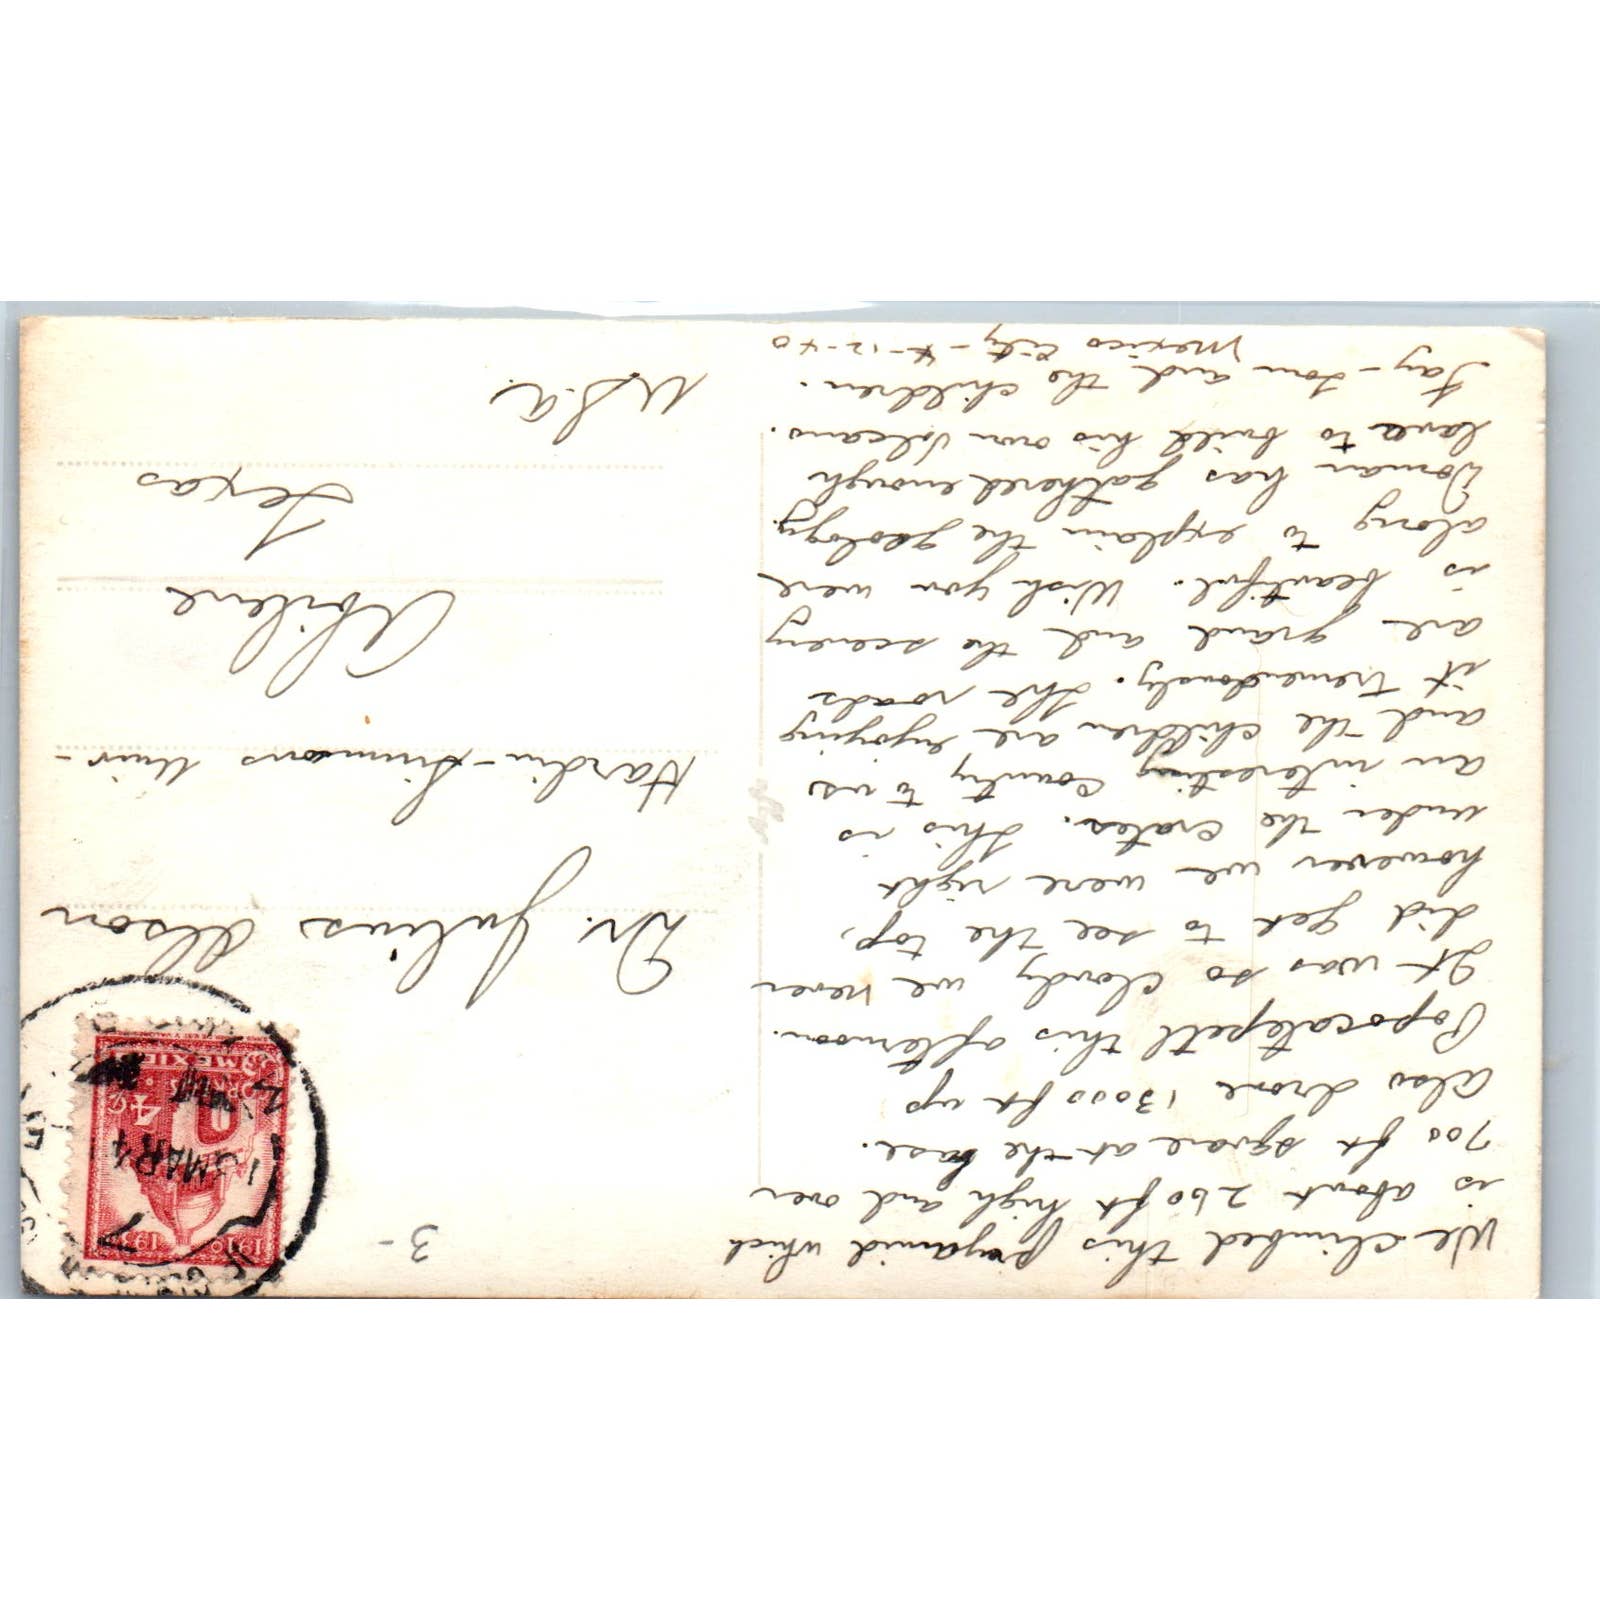 We climbed this pyramid which
is about 260 ft high and over
700 ft square at the base.
Also drove 13000 ft up
Popocatepetl this afternoon.
It was so cloudy we never
did get to see the top,
however we were right
under the crater. This is
an interesting country to us
and the children are enjoying
it tremendously. The roads
are grand and the scenery
is beautiful. Wish you were
along to explain the geology.
Doman has gathered enough
lava to build his own volcano.
Fay - Tom and the children.
Mexico City - 4-12-40
3-
1910
CORREOS
4¢
MEXICO
MAR 4
7
Dr. Julius Olson
Hardin-Simmons Univ-
Abilene
Texas
U.S.A.